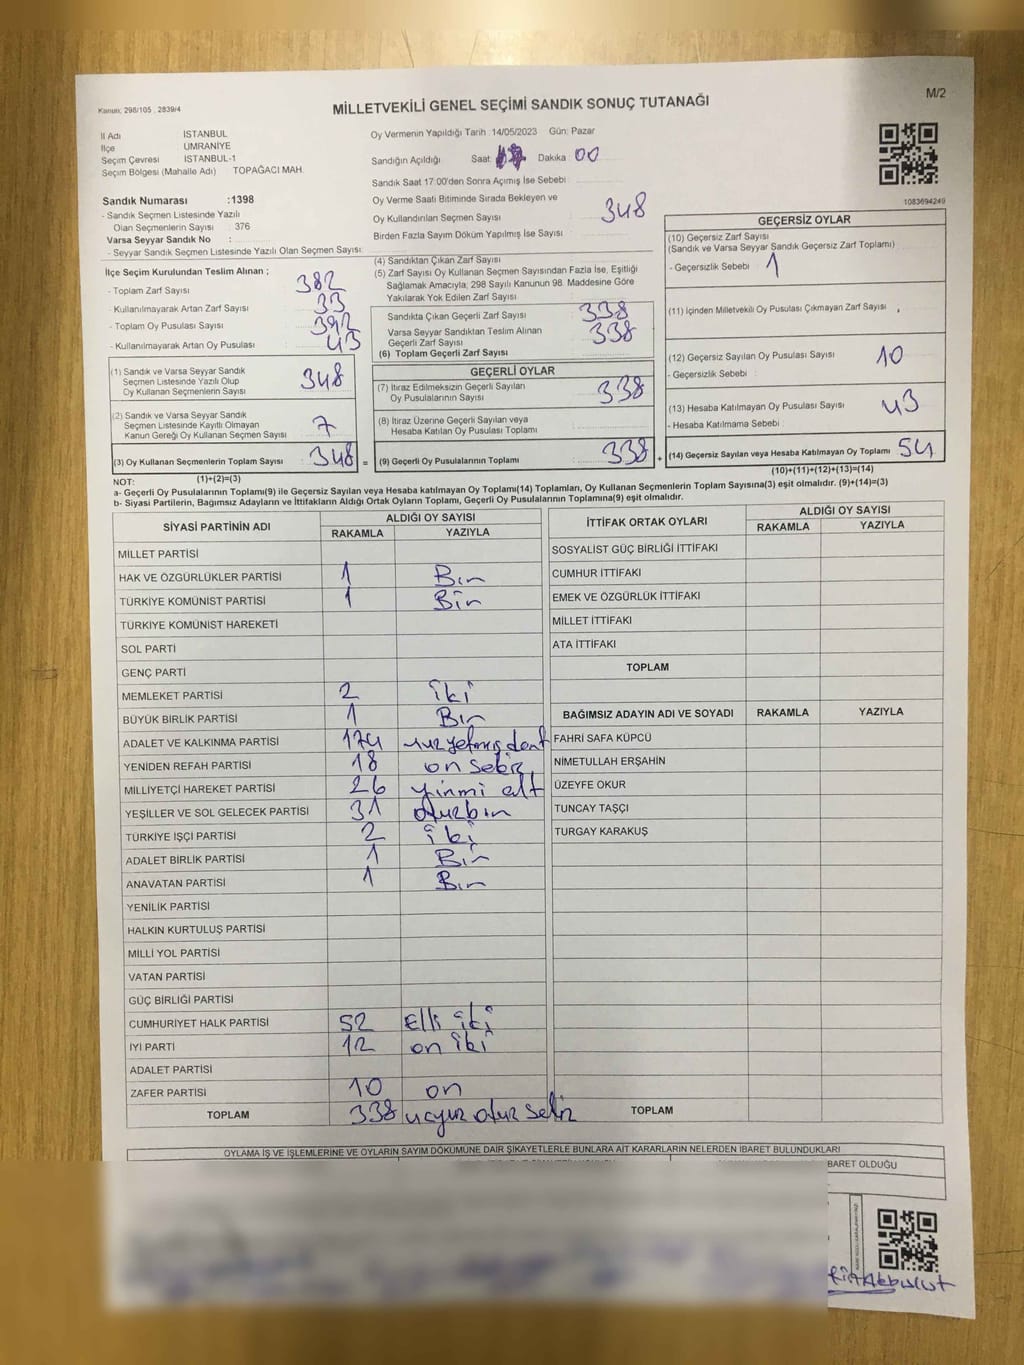 Kanun; 298/105 , 2839/4
MİLLETVEKİLİ GENEL SEÇİMİ SANDIK SONUÇ TUTANAĞI
M/2
İl Adı İSTANBUL
İlçe ÜMRANİYE
Seçim Çevresi İSTANBUL-1
Seçim Bölgesi (Mahalle Adı) TOPAĞACI MAH.
Oy Vermenin Yapıldığı Tarih : 14/05/2023 Gün: Pazar
Sandığın Açıldığı Saat Dakika : 00
Sandık Saat 17:00'den Sonra Açımış İse Sebebi :
Oy Verme Saati Bitiminde Sırada Bekleyen ve
Oy Kullandırılan Seçmen Sayısı 348
Birden Fazla Sayım Döküm Yapılmış İse Sayısı :
1083694249
Sandık Numarası :1398
- Sandık Seçmen Listesinde Yazılı
Olan Seçmenlerin Sayısı : 376
Varsa Seyyar Sandık No :
- Seyyar Sandık Seçmen Listesinde Yazılı Olan Seçmen Sayısı:
İlçe Seçim Kurulundan Teslim Alınan ;
- Toplam Zarf Sayısı : 382
- Kullanılmayarak Artan Zarf Sayısı : 33
- Toplam Oy Pusulası Sayısı : 392
- Kullanılmayarak Artan Oy Pusulası : 43
(1) Sandık ve Varsa Seyyar Sandık
Seçmen Listesinde Yazılı Olup
Oy Kullanan Seçmenlerin Sayısı : 348
(2) Sandık ve Varsa Seyyar Sandık
Seçmen Listesinde Kayıtlı Olmayan
Kanun Gereği Oy Kullanan Seçmen Sayısı : 7
(3) Oy Kullanan Seçmenlerin Toplam Sayısı : 348 =
(1)+(2)=(3)
(4) Sandıktan Çıkan Zarf Sayısı :
(5) Zarf Sayısı Oy Kullanan Seçmen Sayısından Fazla İse, Eşitliği
Sağlamak Amacıyla, 298 Sayılı Kanunun 98. Maddesine Göre
Yakılarak Yok Edilen Zarf Sayısı :
Sandıkta Çıkan Geçerli Zarf Sayısı : 338
Varsa Seyyar Sandıktan Teslim Alınan
Geçerli Zarf Sayısı : 338
(6) Toplam Geçerli Zarf Sayısı :
GEÇERLİ OYLAR
(7) İtiraz Edilmeksizin Geçerli Sayılan
Oy Pusulalarının Sayısı : 338
(8) İtiraz Üzerine Geçerli Sayılan veya
Hesaba Katılan Oy Pusulası Toplamı :
(9) Geçerli Oy Pusulalarının Toplamı : 338 +
GEÇERSİZ OYLAR
(10) Geçersiz Zarf Sayısı
(Sandık ve Varsa Seyyar Sandık Geçersiz Zarf Toplamı)
- Geçersizlik Sebebi : 1
(11) İçinden Milletvekili Oy Pusulası Çıkmayan Zarf Sayısı :
(12) Geçersiz Sayılan Oy Pusulası Sayısı : 10
- Geçersizlik Sebebi :
(13) Hesaba Katılmayan Oy Pusulası Sayısı : 43
- Hesaba Katılmama Sebebi :
(14) Geçersiz Sayılan veya Hesaba Katılmayan Oy Toplamı : 54
(10)+(11)+(12)+(13)=(14)
NOT:
a- Geçerli Oy Pusulalarının Toplamı(9) ile Geçersiz Sayılan veya Hesaba katılmayan Oy Toplamı(14) Toplamları, Oy Kullanan Seçmenlerin Toplam Sayısına(3) eşit olmalıdır. (9)+(14)=(3)
b- Siyasi Partilerin, Bağımsız Adayların ve İttifakların Aldığı Ortak Oyların Toplamı, Geçerli Oy Pusulalarının Toplamına(9) eşit olmalıdır.
SİYASİ PARTİNİN ADI ALDIĞI OY SAYISI
RAKAMLA YAZIYLA
MİLLET PARTİSİ
HAK VE ÖZGÜRLÜKLER PARTİSİ 1 Bir
TÜRKİYE KOMÜNİST PARTİSİ 1 Bir
TÜRKİYE KOMÜNİST HAREKETİ
SOL PARTİ
GENÇ PARTİ
MEMLEKET PARTİSİ 2 iki
BÜYÜK BİRLİK PARTİSİ 1 Bir
ADALET VE KALKINMA PARTİSİ 174 yüz yetmiş dört
YENİDEN REFAH PARTİSİ 18 on sekiz
MİLLİYETÇİ HAREKET PARTİSİ 26 yirmi altı
YEŞİLLER VE SOL GELECEK PARTİSİ 31 otuzbir
TÜRKİYE İŞÇİ PARTİSİ 2 iki
ADALET BİRLİK PARTİSİ 1 Bir
ANAVATAN PARTİSİ 1 Bir
YENİLİK PARTİSİ
HALKIN KURTULUŞ PARTİSİ
MİLLİ YOL PARTİSİ
VATAN PARTİSİ
GÜÇ BİRLİĞİ PARTİSİ
CUMHURİYET HALK PARTİSİ 52 Elli iki
İYİ PARTİ 12 on iki
ADALET PARTİSİ
ZAFER PARTİSİ 10 on
TOPLAM 338 üçyüz otuz sekiz
İTTİFAK ORTAK OYLARI ALDIĞI OY SAYISI
RAKAMLA YAZIYLA
SOSYALİST GÜÇ BİRLİĞİ İTTİFAKI
CUMHUR İTTİFAKI
EMEK VE ÖZGÜRLÜK İTTİFAKI
MİLLET İTTİFAKI
ATA İTTİFAKI
TOPLAM
BAĞIMSIZ ADAYIN ADI VE SOYADI RAKAMLA YAZIYLA
FAHRİ SAFA KÜPCÜ
NİMETULLAH ERŞAHİN
ÜZEYFE OKUR
TUNCAY TAŞÇI
TURGAY KARAKUŞ
TOPLAM
OYLAMA İŞ VE İŞLEMLERİNE VE OYLARIN SAYIM DÖKÜMÜNE DAİR ŞİKAYETLERLE BUNLARA AİT KARARLARIN NELERDEN İBARET BULUNDUKLARI
BARET OLDUĞU
Akbulut